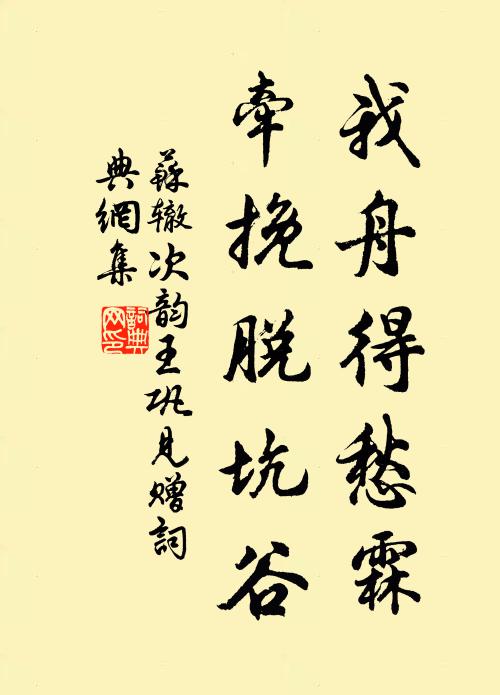 我舟得愁霖
牵挽脱坑谷
蘇辙次韵王巩見赠詞
典網集
詞典
网印